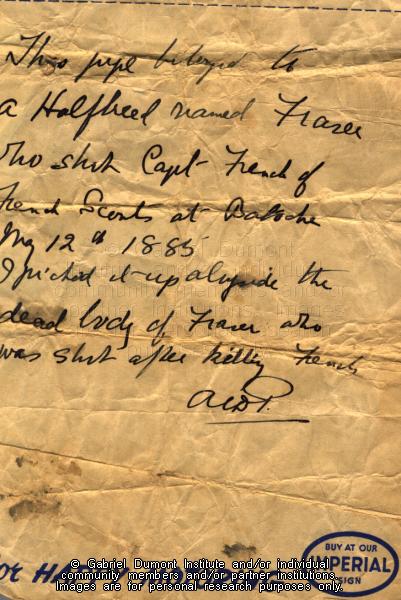 This pipe belonged to
a Halfbreed named Fraser
who shot Capt- French of
French Scouts at Batoche
May 12th 1885
I picked it up alongside the
dead body of Fraser who
was shot after killing French
BUY AT OUR
IMPERIAL
SIGN
or HA
© Gabriel Dumont Institute and/or individual
community members and/or partner institutions.
Images are for personal research purposes only.